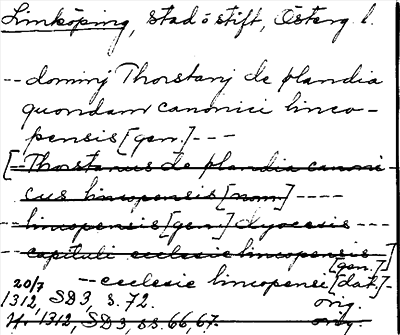 Linköping, stad o stift, Österg. l.
-- dominj Thorstanj de plandia
quondam canonici linco-
pensis [gen.] ---
[-- Thorstanus de plandia canoni-
cus lincopensis [nom.] ----
-- lincopensis [gen.] dyocesis ---
-- capituli ecclesie lincopensis --]
[gen.]
-- ecclesie lincopensi [dat.] -
20/7
1312, SD3, s. 72. orig.
1312, SD3, ss. 66, 67. orig.